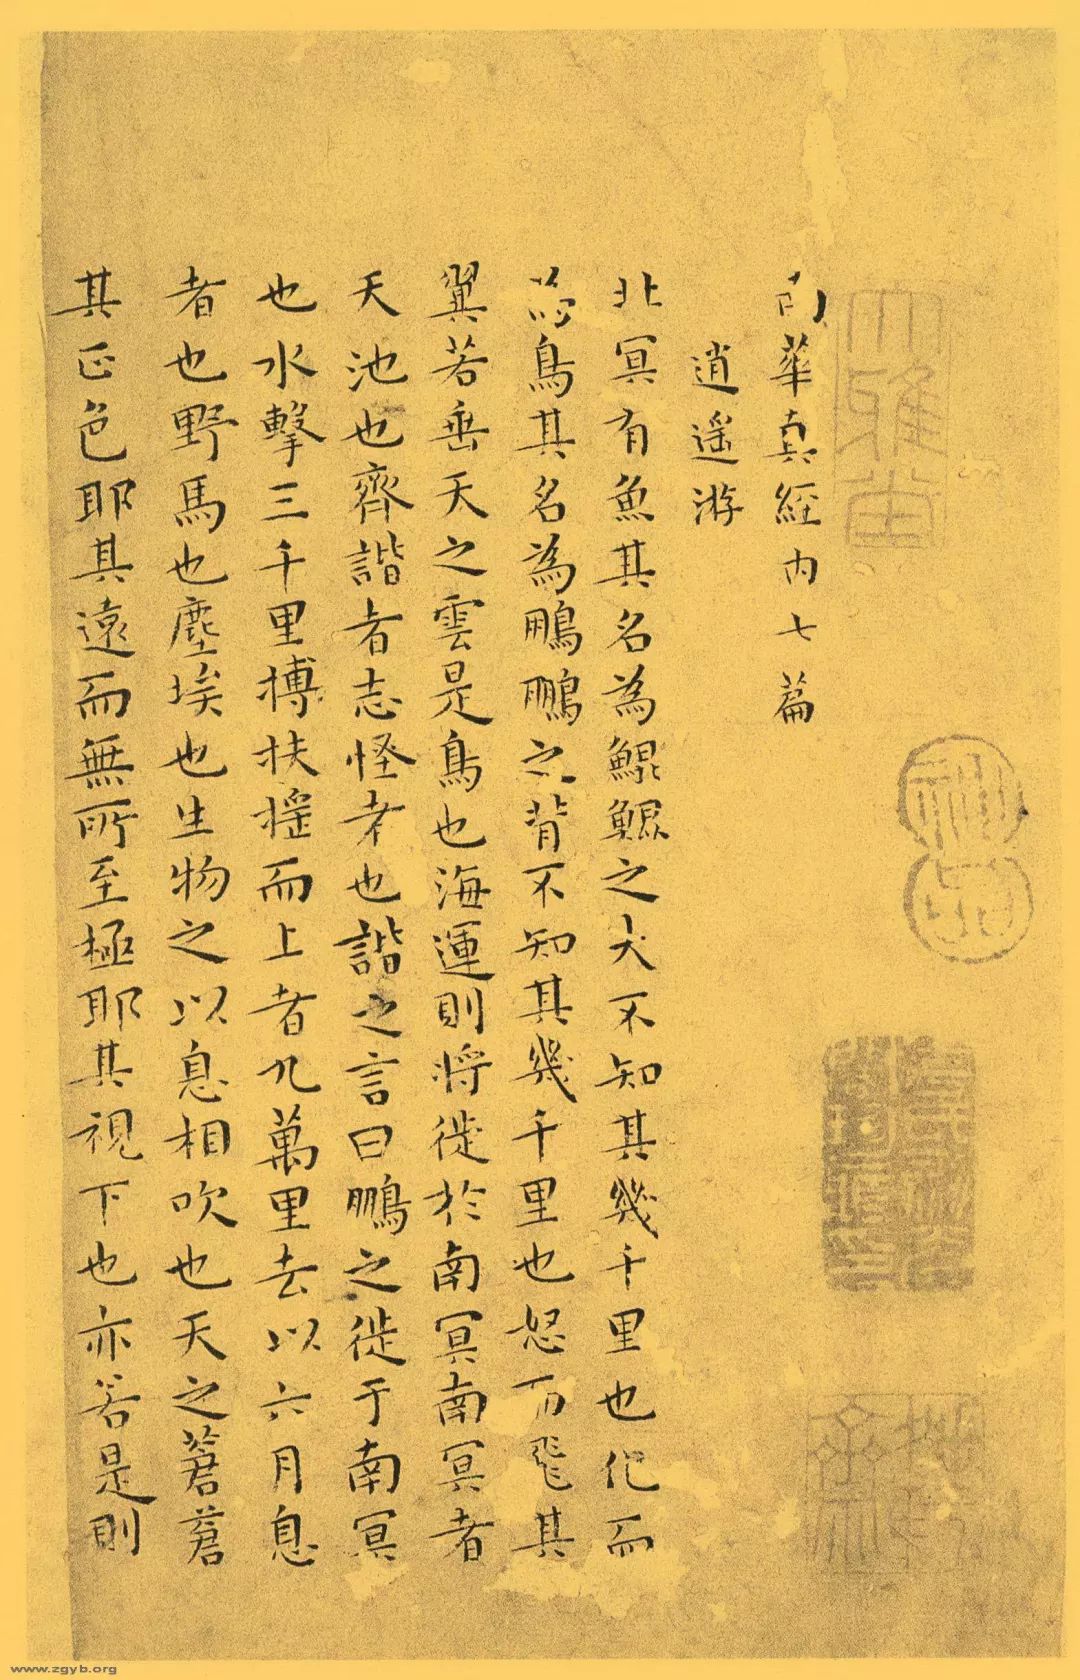 大雅堂
南華真經内七篇
逍遥游
北冥有魚其名為鯤鯤之大不知其幾千里也化而
為鳥其名為鵬鵬之背不知其幾千里也怒而飛其
翼若垂天之雲是鳥也海運則將徙於南冥南冥者
天池也齊諧者志怪者也諧之言曰鵬之徙于南冥
也水擊三千里搏扶摇而上者九萬里去以六月息
者也野馬也塵埃也生物之以息相吹也天之蒼蒼
其正色耶其遠而無所至極耶其視下也亦若是則
www.zgyb.org